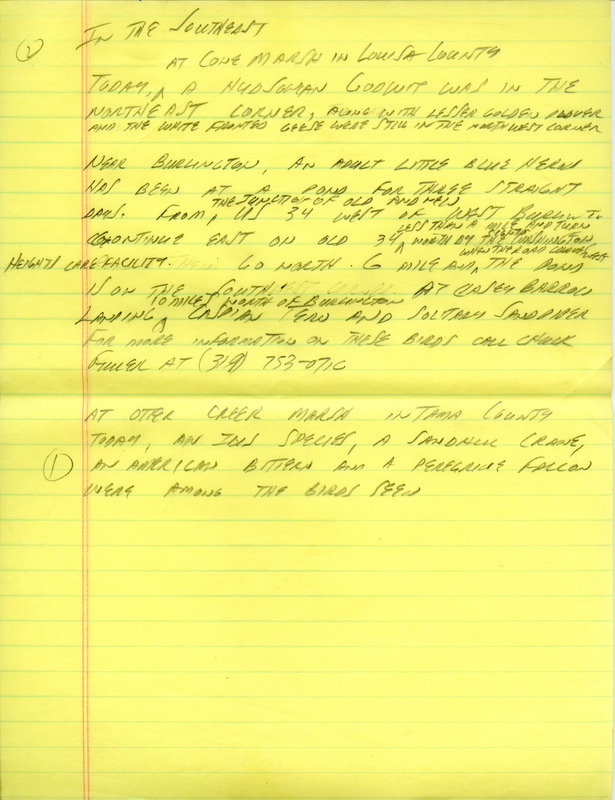 ② IN THE SOUTHEAST
AT CONE MARSH IN LOUISA COUNTY
TODAY, A HUDSONIAN GODWIT WAS IN THE
NORTHEAST CORNER, ALONG WITH LESSER GOLDEN PLOVER
AND THE WHITE FRONTED GEESE WERE STILL IN THE NORTHWEST CORNER
NEAR BURLINGTON, AN ADULT LITTLE BLUE HERON
HAS BEEN AT A POND FOR THREE STRAIGHT
THE JUNCTION OF OLD AND NEW
DAYS. FROM, US 34 WEST OF WEST BURLIN
LESS THAN A MILE AND TURN
CONTINUE EAST ON OLD 34, NORTH BY THE BURLINGTON
WHEN THE ROAD
HEIGHTS CARE FACILITY. GO NORTH .6 MILE AND, THE POND
IS ON THE AT CASEY BARROW
10 MILES NORTH OF BURLINGTON
LANDING, CASPIAN TERN AND SOLITARY SANDPIPER
FOR MORE INFORMATION ON THESE BIRDS CALL CHUCK
FULLER AT (319) 753-0710
AT OTTER CREEK MARSH IN TAMA COUNTY
① TODAY, AN IBIS SPECIES, A SANDHILL CRANE,
AN AMERICAN BITTERN AND A PEREGRINE FALCON
WERE AMONG THE BIRDS SEEN